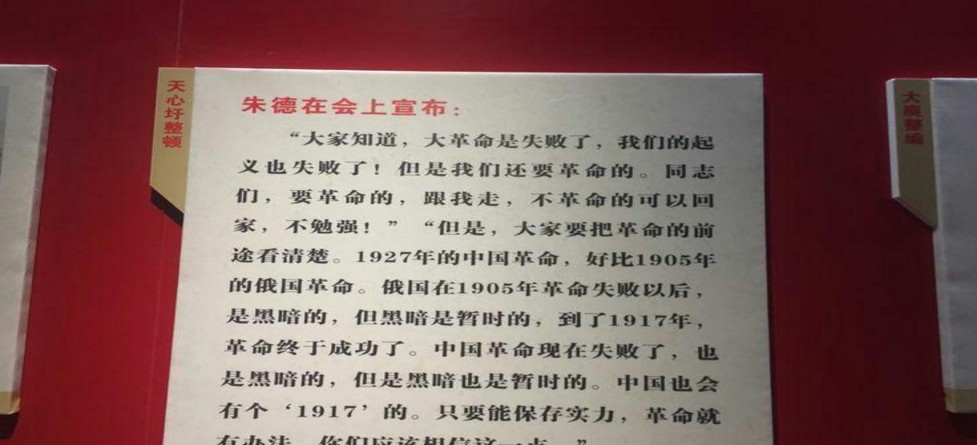 天心圩整顿
朱德在会上宣布：
“大家知道，大革命是失败了，我们的起
义也失败了！但是我们还要革命的。同志
们，要革命的，跟我走，不革命的可以回
家，不勉强！”“但是，大家要把革命的前
途看清楚。1927年的中国革命，好比1905年
的俄国革命。俄国在1905年革命失败以后，
是黑暗的，但黑暗是暂时的，到了1917年，
革命终于成功了。中国革命现在失败了，也
是黑暗的，但是黑暗也是暂时的。中国也会
有个‘1917’的。只要能保存实力，革命就
有办法，你们应该相信这一点。”
大庾整编